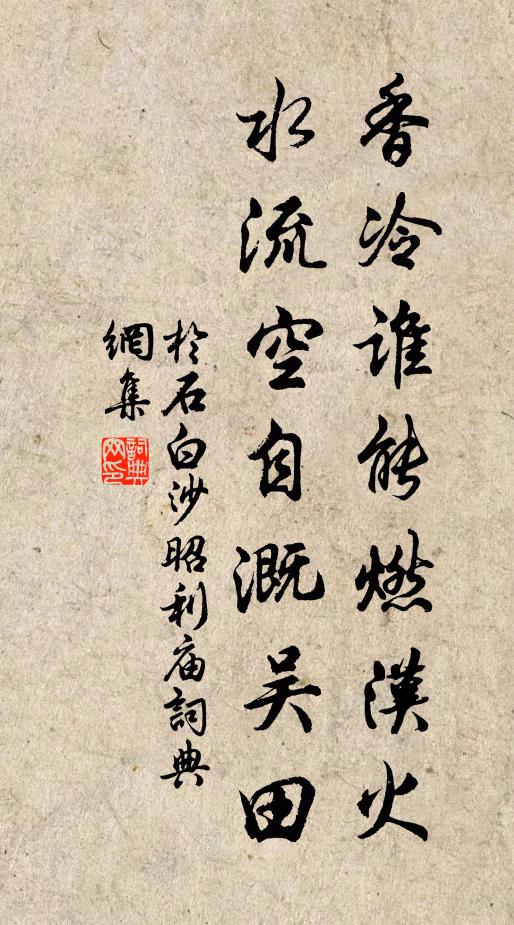 香冷谁能燃漢火
水流空自溉吴田
於石白沙昭利庙詞典
網集
詞典
网印